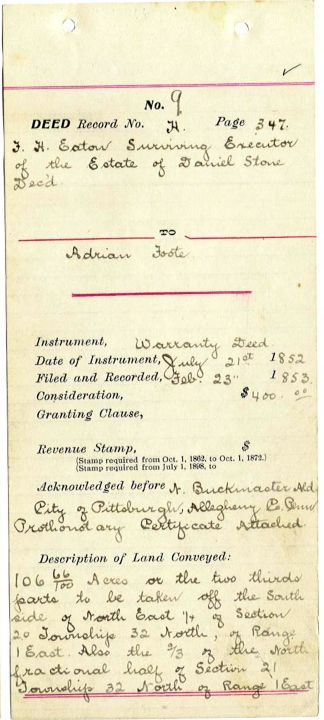 No. 9
DEED Record No. H. Page 347.
F. H. Eaton Surviving Executor
of the Estate of Daniel Stone
Dec'd.
TO
Adrian Foote
Instrument, Warranty Deed.
Date of Instrument, July 21st 1852
Filed and Recorded, Feb. 23" 1853.
Consideration, $400.00
Granting Clause,
Revenue Stamp, $
(Stamp required from Oct. 1, 1862, to Oct. 1, 1872.)
(Stamp required from July 1, 1898, to
Acknowledged before N. Buckmaster Ald.
City of Pittsburgh, Allegheny Co. Penn
Prothonotary Certificate Attached.
Description of Land Conveyed:
106 66/100 Acres or the two thirds
parts to be taken off the South
side of North East 1/4 of Section
20 Township 32 North, of Range
1 East. Also the 2/3 of the North
fractional half of Section 21
Township 32 North of Range 1 East